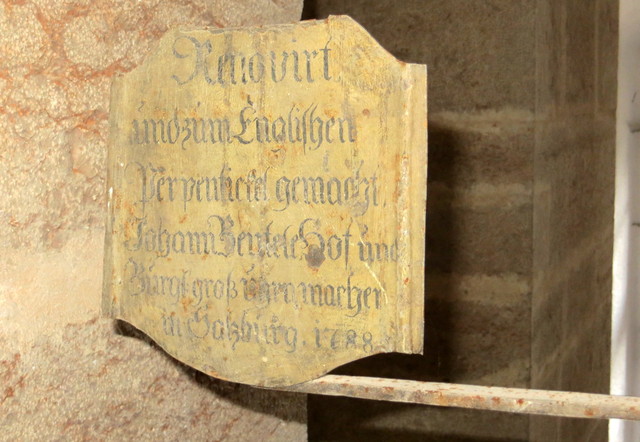 Renovirt
und zum Englishen
Perpentickel gemacht.
Johann Bentele Hof und
Burgl groß uhrnmacher
in Salzburg. 1788